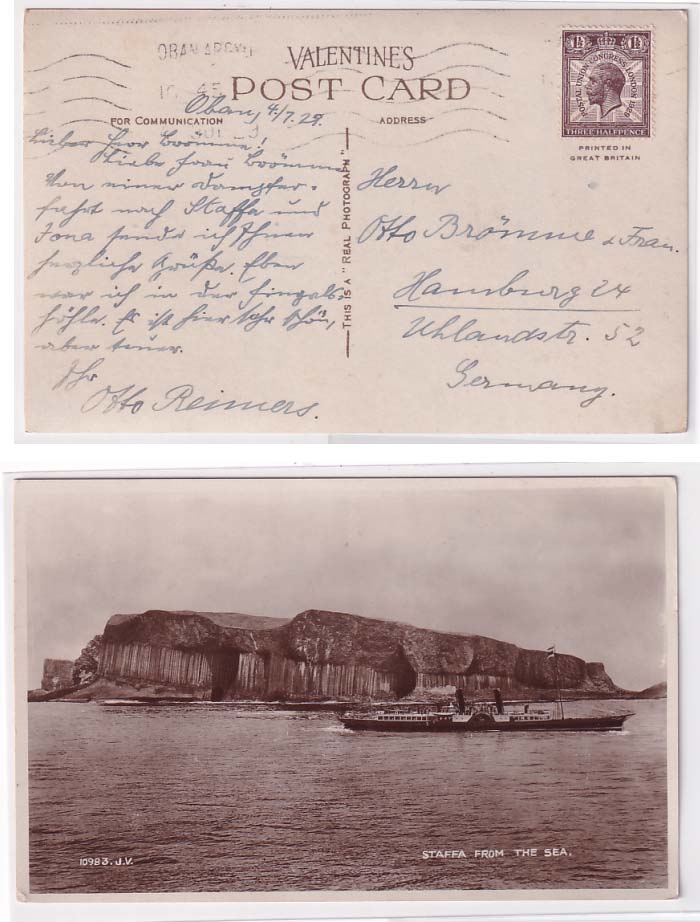 OBAN ARGYLL
10 45
JUL 29
VALENTINES
POST CARD
FOR COMMUNICATION
ADDRESS
1½ 1½
POSTAL UNION CONGRESS LONDON 1929
THREE HALFPENCE
PRINTED IN
GREAT BRITAIN
Oban, 4./7.29.
Lieber Herr Brömme!
Liebe Frau Brömme
Von einer Dampfer-
fahrt nach Staffa und
Iona sende ich Ihnen
herzliche Grüße. Eben
war ich in der Fingals-
höhle. Es ist hier sehr schön,
aber teuer.
Ihr
Otto Reimers.
THIS IS A "REAL PHOTOGRAPH"
Herrn
Otto Brömme & Frau.
Hamburg 24
Uhlandstr. 52
Germany.
10983. J.V.
STAFFA FROM THE SEA.